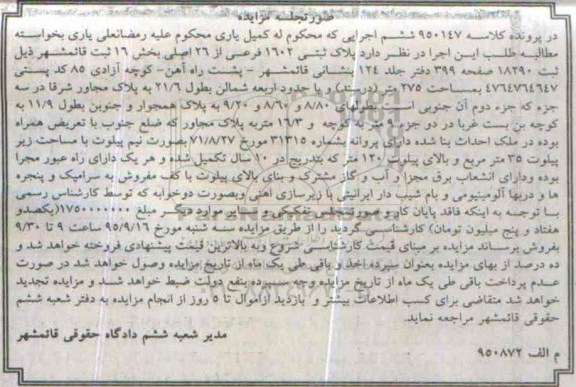 صورتجلسه مزایده
در پرونده کلاسه ۹۵۰۱۴۷ ششم اجرایی که محکوم له کمیل یاری محکوم علیه رمضانعلی یاری بخواسته
مطالبه طلب این اجرا در نظر دارد پلاک ثبتی ۱۶۰۲ فرعی از ۲۶ اصلی بخش ۱۶ ثبت قائمشهر ذیل
ثبت ۱۸۲۹۰ صفحه ۳۹۹ دفتر جلد ۱۲۴ بنشانی قائمشهر - پشت راه آهن - کوچه آزادی ۸۵ کد پستی
۴۷۶۴۷۶۴۶۴۷ بمساحت ۲۷۵ متر (درسند) و با حدود اربعه شمالن بطول ۲۱/۶ به پلاک مجاور شرقا در سه
جزء که جزء دوم آن جنوبی است بطولهای ۸/۸۰ و ۸/۶۷ و ۹/۲۰ به پلاک همجوار و جنوبن بطول ۱۱/۹ به
کوچه بن بست غربا در دو جزء ۲ متر به کوچه و ۱۶/۳ متربه پلاک مجاور که ضلع جنوب با تعریض همراه
بوده در ملک احداث بنا شده دارای پروانه بشماره ۳۱۳۱۵ مورخ ۷۱/۸/۲۷ بصورت نیم پیلوت با مساحت زیر
پیلوت ۳۵ متر مربع و بالای پیلوت ۱۲۰ متر که بتدریج در ۱۰ سال تکمیل شده و هر یک دارای راه عبور مجزا
بوده ودارای انشعاب برق مجزا و آب و گاز مشترک و بنای بالای پیلوت با کف مفروش به سرامیک و پنجره
ها و دربها آلومینیومی و بام شیب دار ایرانیتی با زیرسازی آهنی وبصورت دوخوابه که توسط کارشناس رسمی
با توجه به اینکه فاقد پایان کار و صورتمجلس تفکیکی و سایر موارد دیگر مبلغ ۱۷۵۰۰۰۰۰۰۰ (یکصدو
هفتاد و پنج میلیون تومان) کارشناسی گردید را از طریق مزایده سه شنبه مورخ ۹۵/۹/۱۶ ساعت ۹ تا ۹/۳۰
بفروش برساند مزایده بر مبنای قیمت کارشناسی شروع وبه بالاترین قیمت پیشنهادی فروخته خواهد شد و
ده درصد از بهای مزایده بعنوان سپرده اخذ و باقی طی یک ماه از تاریخ مزایده وصول خواهد شد در صورت
عدم پرداخت باقی طی یک ماه از تاریخ مزایده وجه سپرده بنفع دولت ضبط خواهد شد و مزایده تجدید
خواهد شد متقاضی برای کسب اطلاعات بیشتر و بازدید ازاموال تا ۵ روز از انجام مزایده به دفتر شعبه ششم
حقوقی قائمشهر مراجعه نماید.
مدیر شعبه ششم دادگاه حقوقی قائمشهر
م الف ۹۵۰۸۷۲